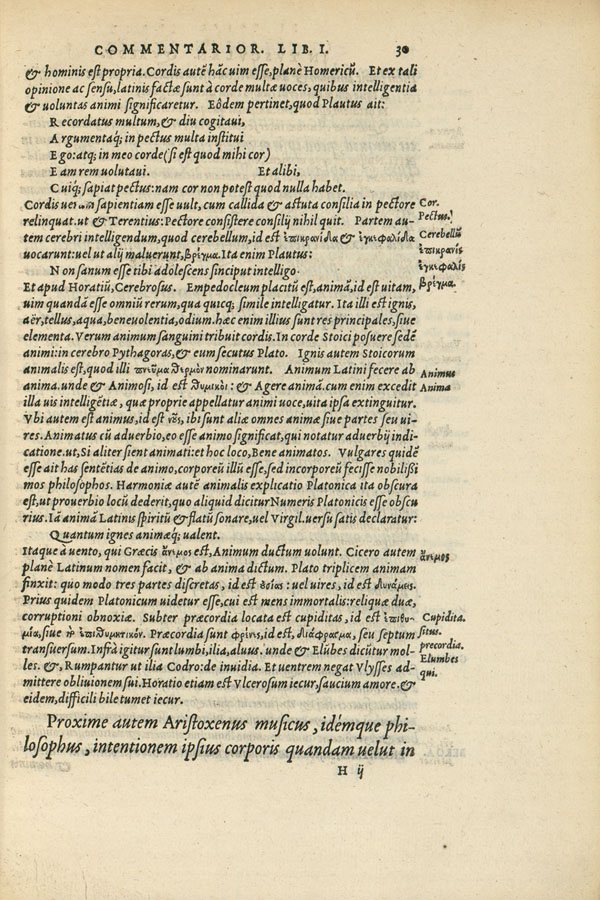 COMMENTARIOR. LIB. I. 30
& hominis est propria. Cordis autē hāc uim esse, planè Homericū. Et ex tali
opinione ac sensu, latinis factæ sunt à corde multæ uoces, quibus intelligentia
& uoluntas animi significaretur. Eôdem pertinet, quod Plautus ait:
Recordatus multum, & diu cogitaui,
Argumentaq; in pectus multa institui
Ego: atq; in meo corde (si est quod mihi cor)
Eam rem uolutaui. Et alibi,
Cuiq; sapiat pectus: nam cor non potest quod nulla habet.
Cordis sapientiam esse uult, cum callida & astuta consilia in pectore
Cor.
relinquat. ut & Terentius: Pectore consistere consilij nihil quit. Partem au-
Pectus.
tem cerebri intelligendum, quod cerebellum, id est ἐπικρανίδα & ἐγκεφαλίδα
Cerebellū
uocarunt: uel ut alij maluerunt, βρίγμα. Ita enim Plautus:
ἐπικρανὶς
Non sanum esse tibi adolescens sinciput intelligo
ἐγκεφαλὶς
Et apud Horatiū, Cerebrosus. Empedocleum placitū est, animā, id est uitam,
βρίγμα.
uim quandā esse omniū rerum, qua quicq; simile intelligatur. Ita illi est ignis,
aër, tellus, aqua, beneuolentia, odium. hæc enim illius sunt res principales, siue
elementa. Verum animum sanguini tribuit cordis. In corde Stoici posuere sedē
animi: in cerebro Pythagoras, & eum secutus Plato. Ignis autem Stoicorum
animalis est, quod illi πνεῦμα θερμὸν nominarunt. Animum Latini fecere ab
Animus
anima. unde & Animosi, id est θυμικοὶ: & Agere animā. cum enim excedit
Anima
illa uis intelligētiæ, quæ proprie appellatur animi uoce, uita ipsa extinguitur.
Vbi autem est animus, id est νοῦς, ibi sunt aliæ omnes animæ siue partes seu ui-
res. Animatus cū aduerbio, eo esse animo significat, qui notatur aduerbij indi-
catione. ut, Si aliter sient animati: et hoc loco, Bene animatos. Vulgares quidē
esse ait has sentētias de animo, corporeū illū esse, sed incorporeū fecisse nobilissi
mos philosophos. Harmoniæ autē animalis explicatio Platonica ita obscura
est, ut prouerbio locū dederit, quo aliquid dicitur Numeris Platonicis esse obscu
rius. Iā animā Latinis spiritū & flatū sonare, uel Virgil. uersu satis declaratur:
Quantum ignes animæq; ualent.
Itaque à uento, qui Græcis ἄνεμος est, Animum ductum uolunt. Cicero autem
ἄνεμος
planè Latinum nomen facit, & ab anima dictum. Plato triplicem animam
finxit: quo modo tres partes discretas, id est : uel uires, id est δυνάμεις.
Prius quidem Platonicum uidetur esse, cui est mens immortalis: reliquæ duæ,
corruptioni obnoxiæ. Subter præcordia locata est cupiditas, id est ἐπιθυ-
Cupidita.
μία, siue τὸ ἐπιθυμητικόν. Præcordia sunt φρένες, id est, διάφραγμα, seu septum
situs.
transuersum. Infrà igitur sunt lumbi, ilia, aluus. unde & Elūbes dicūtur mol-
precordia.
les. &, Rumpantur ut ilia Codro: de inuidia. Et uentrem negat Vlysses ad-
Elumbes
mittere obliuionem sui. Horatio etiam est Vlcerosum iecur, saucium amore. &
qui.
eidem, difficili bile tumet iecur.
Proxime autem Aristoxenus musicus, idémque phi-
losophus, intentionem ipsius corporis quandam uelut in
H ij